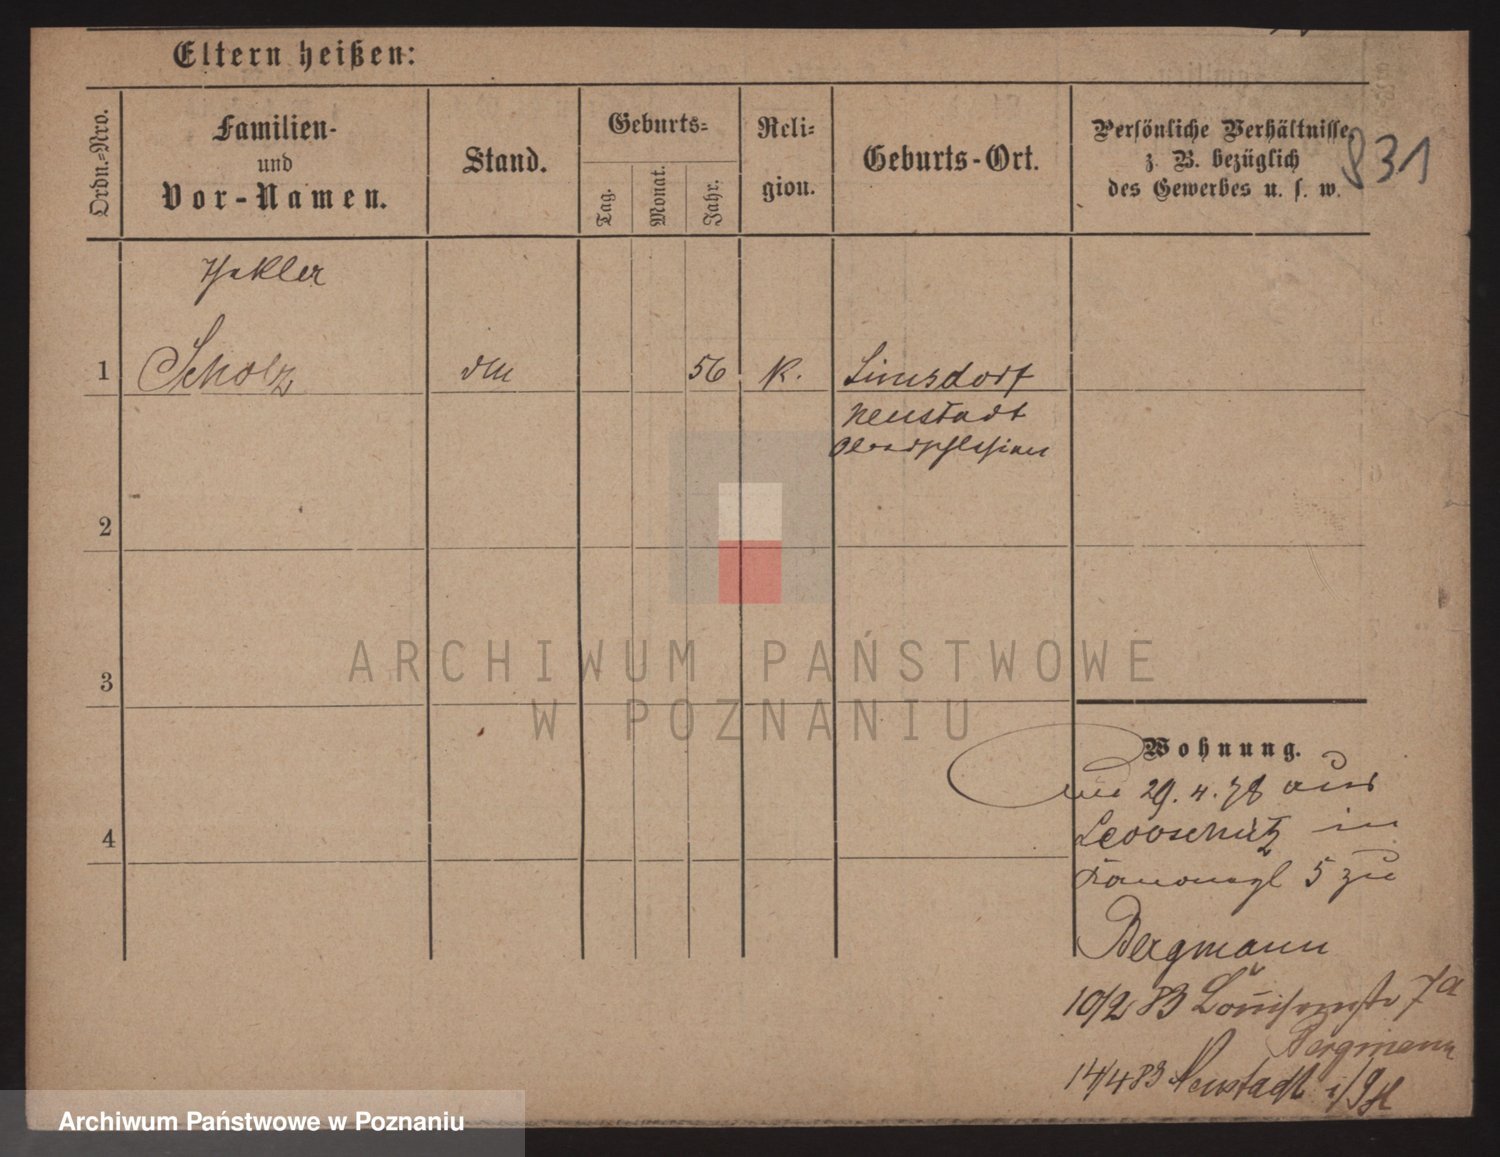 Eltern heißen:
Ordn.-Nro.
Familien-
und
Vor-Namen.
Stand.
Geburts-
Tag.
Monat.
Jahr.
Reli-
gion.
Geburts-Ort.
Persönliche Verhältnisse,
z. B. bezüglich
des Gewerbes u. s. w.
831
1
Scholz
56
K.
Neustadt
Oberschlesien
2
3
4
ARCHIWUM PAŃSTWOWE
W POZNANIU
Wohnung.
29. 4. 78 aus
Leobschütz in
5 zu
Bergmann
10/2 83 Louisenstr 7a
Bergmann
14/4 83 Neustadt
Archiwum Państwowe w Poznaniu